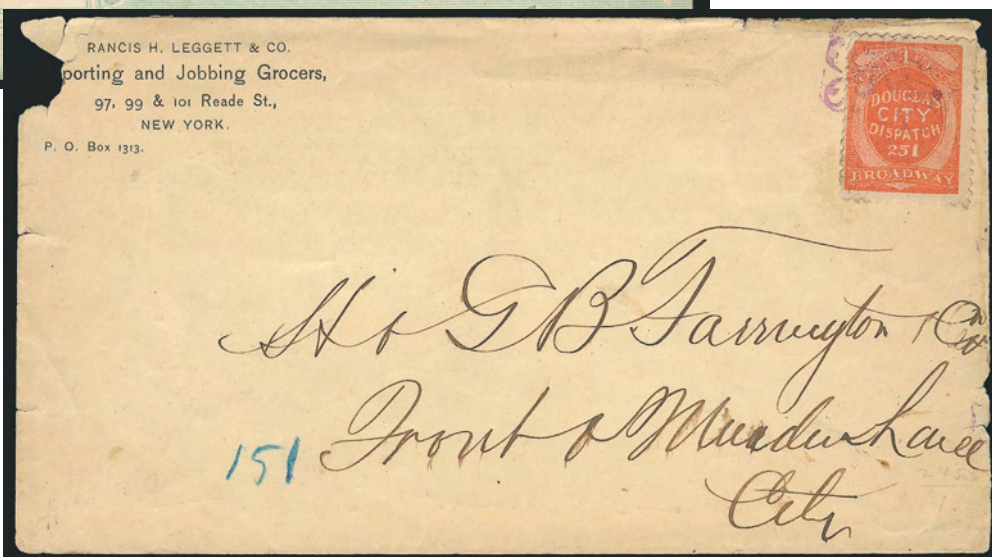 RANCIS H. LEGGETT & CO.
porting and Jobbing Grocers,
97, 99 & 101 Reade St.,
NEW YORK.
P. O. Box 1313.
DOUGLAS
CITY
DISPATCH
251
BROADWAY
H & G B Farrington
Front & Maiden Lane
City
151